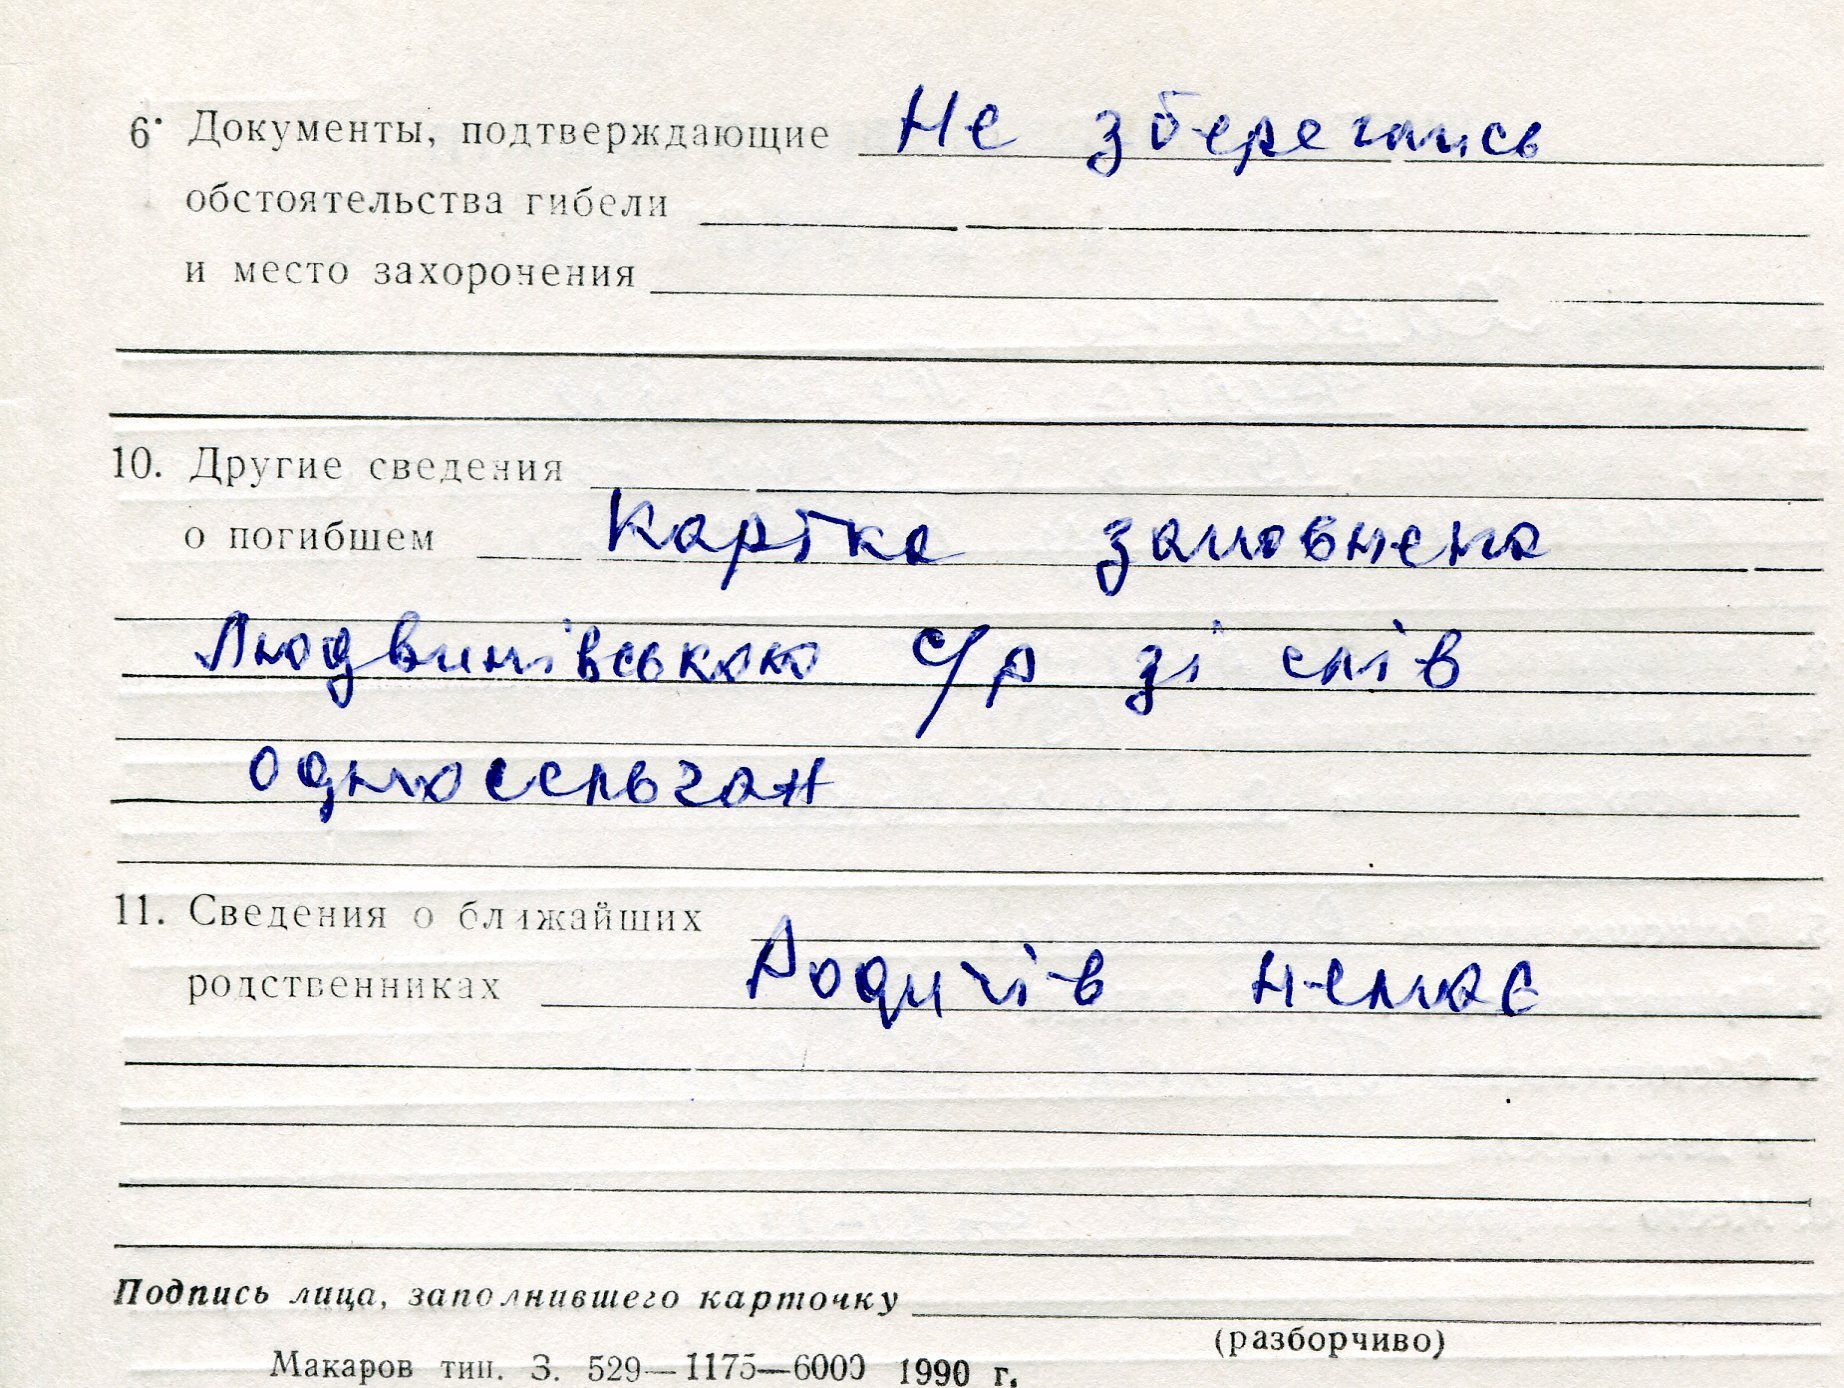 6. Документы, подтверждающие Не збереглись
обстоятельства гибели
и место захоронения
10. Другие сведения
о погибшем Картка заповнена
Людвинівською с/р зі слів
односельчан
11. Сведения о ближайших
родственниках Родичів немає
Подпись лица, заполнившего карточку
(разборчиво)
Макаров тип. З. 529—1175—6000 1990 г.